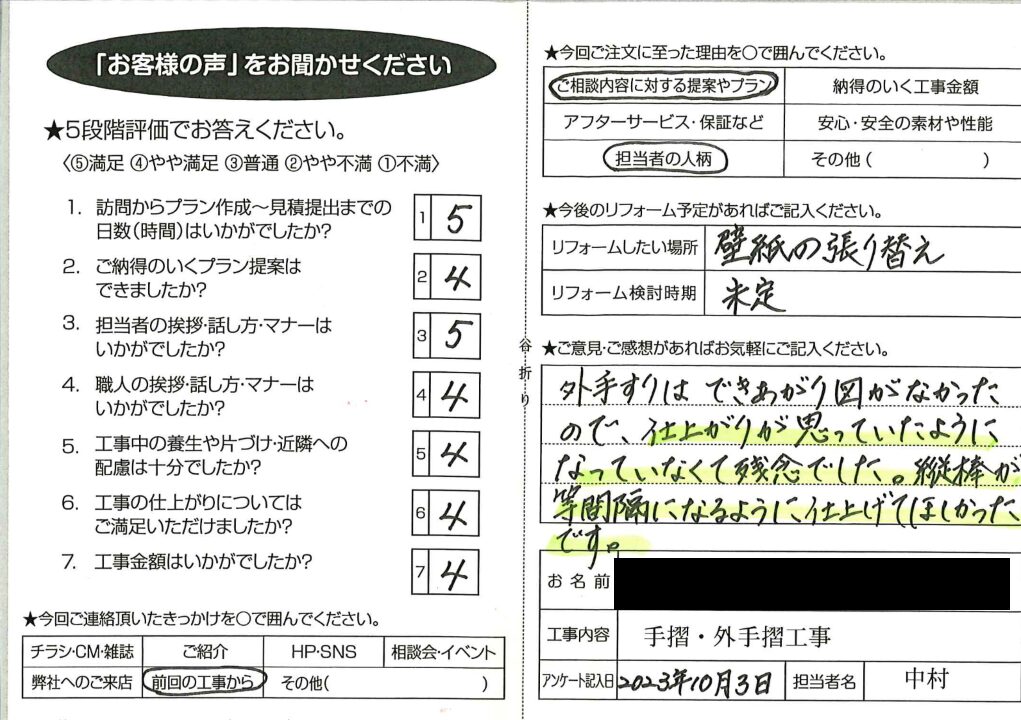 「お客様の声」をお聞かせください
★5段階評価でお答えください。
〈⑤満足 ④やや満足 ③普通 ②やや不満 ①不満〉
1. 訪問からプラン作成～見積提出までの
日数(時間)はいかがでしたか?
1 5
2. ご納得のいくプラン提案は
できましたか?
2 4
3. 担当者の挨拶・話し方・マナーは
いかがでしたか?
3 5
4. 職人の挨拶・話し方・マナーは
いかがでしたか?
4 4
5. 工事中の養生や片づけ・近隣への
配慮は十分でしたか?
5 4
6. 工事の仕上がりについては
ご満足いただけましたか?
6 4
7. 工事金額はいかがでしたか?
7 4
★今回ご連絡頂いたきっかけを〇で囲んでください。
チラシ・CM・雑誌 ご紹介 HP・SNS 相談会・イベント
弊社へのご来店 前回の工事から その他( )
谷折り
★今回ご注文に至った理由を〇で囲んでください。
ご相談内容に対する提案やプラン 納得のいく工事金額
アフターサービス・保証など 安心・安全の素材や性能
担当者の人柄 その他( )
★今後のリフォーム予定があればご記入ください。
リフォームしたい場所 壁紙の張り替え
リフォーム検討時期 未定
★ご意見・ご感想があればお気軽にご記入ください。
外手すりは できあがり図がなかった
ので、仕上がりが思っていたように
なっていなくて残念でした。縦棒が
等間隔になるように仕上げてほしかった
です。
お名前
工事内容 手摺・外手摺工事
アンケート記入日 2023年10月3日 担当者名 中村